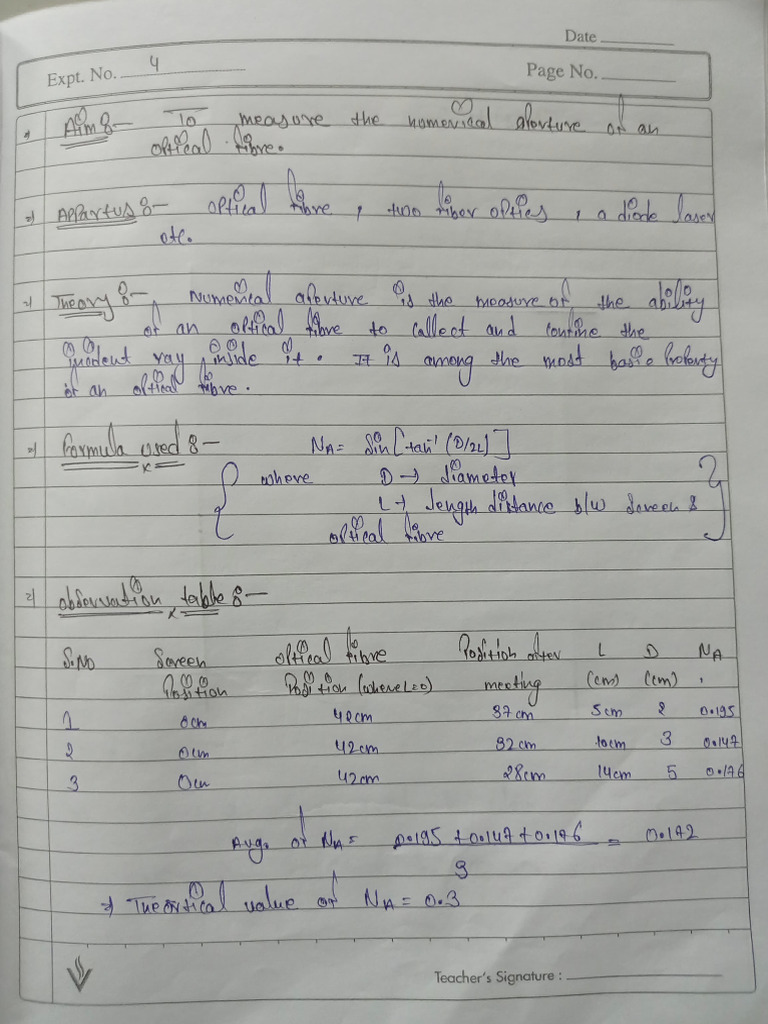 Date
Expt. No. 4 Page No.
Aim :- To measure the numerical aperture of an
optical fibre.
Appartus :- optical fibre, two fiber optics, a diode laser
etc.
Theory :- Numerical aperture is the measure of the ability
of an optical fibre to collect and confine the
incident ray inside it. It is among the most basic property
of an optical fibre.
Formula used :- NA = Sin[tan⁻¹(D/2L)]
where D → diameter
L → length distance b/w screen &
optical fibre
observation table :-
S.NO Screen optical fibre Position after L D NA
Position Position (where L=0) meeting (cm) (cm)
1 0cm 42cm 37cm 5cm 2 0.195
2 0cm 42cm 32cm 10cm 3 0.147
3 0cm 42cm 28cm 14cm 5 0.176
Avg. of NA = 0.195 + 0.147 + 0.176 = 0.172
3
⇒ Theortical value of NA = 0.3
Teacher's Signature :